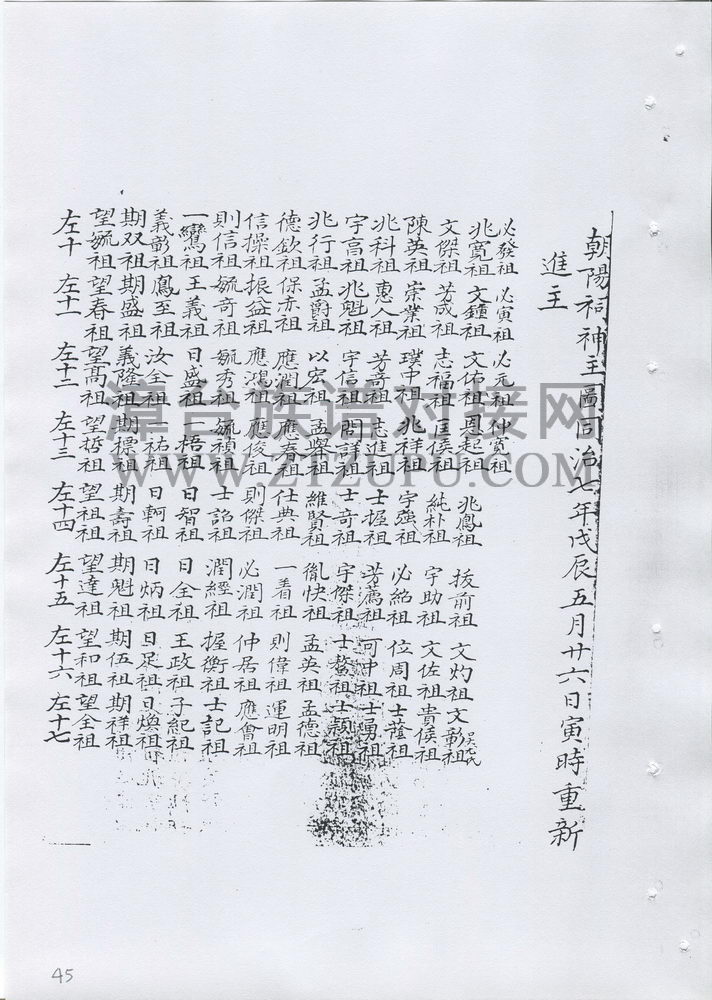 朝陽祠神主圖同治七年戊辰五月廿六日寅時重新
進主
必發祖 必寅祖 必元祖 仲寬祖
兆寬祖 文鍾祖 文佑祖 恩起祖 兆鳳祖 拔前祖 文灼祖 文彰祖
文傑祖 芳成祖 志福祖 匡侯祖 純朴祖 宇助祖 文佐祖 貴侯祖
陳英祖 崇業祖 璞中祖 兆祥祖 宇強祖 必絡祖 位周祖 士蔭祖
兆科祖 惠人祖 芳奇祖 志進祖 士握祖 芳薦祖 可中祖 士勇祖
宇高祖 兆魁祖 宇信祖 問詳祖 士奇祖 宇傑祖 士鰲祖 士顯祖
兆行祖 孟爵祖 以宏祖 孟舉祖 維賢祖 胤快祖 孟英祖 孟德祖
德欽祖 保赤祖 應潤祖 應春祖 仕典祖 一看祖 則偉祖 運明祖
信操祖 振益祖 應鴻祖 應俊祖 則傑祖 必潤祖 仲居祖 應會祖
則信祖 毓奇祖 毓秀祖 毓禎祖 士詔祖 潤經祖 握衡祖 士記祖
一鸞祖 王義祖 日盛祖 一梧祖 日智祖 日全祖 王政祖 子紀祖
義彰祖 鳳至祖 汝全祖 一祐祖 日軻祖 日炳祖 日足祖 日煥祖
期双祖 期盛祖 義隆祖 期標祖 期壽祖 期魁祖 期伍祖 期祥祖
望毓祖 望春祖 望高祖 望哲祖 望祖祖 望達祖 望和祖 望全祖
左十 左十一 左十二 左十三 左十四 左十五 左十六 左十七
漳台族谱对接网
WWW.ZTZUPU.COM
45